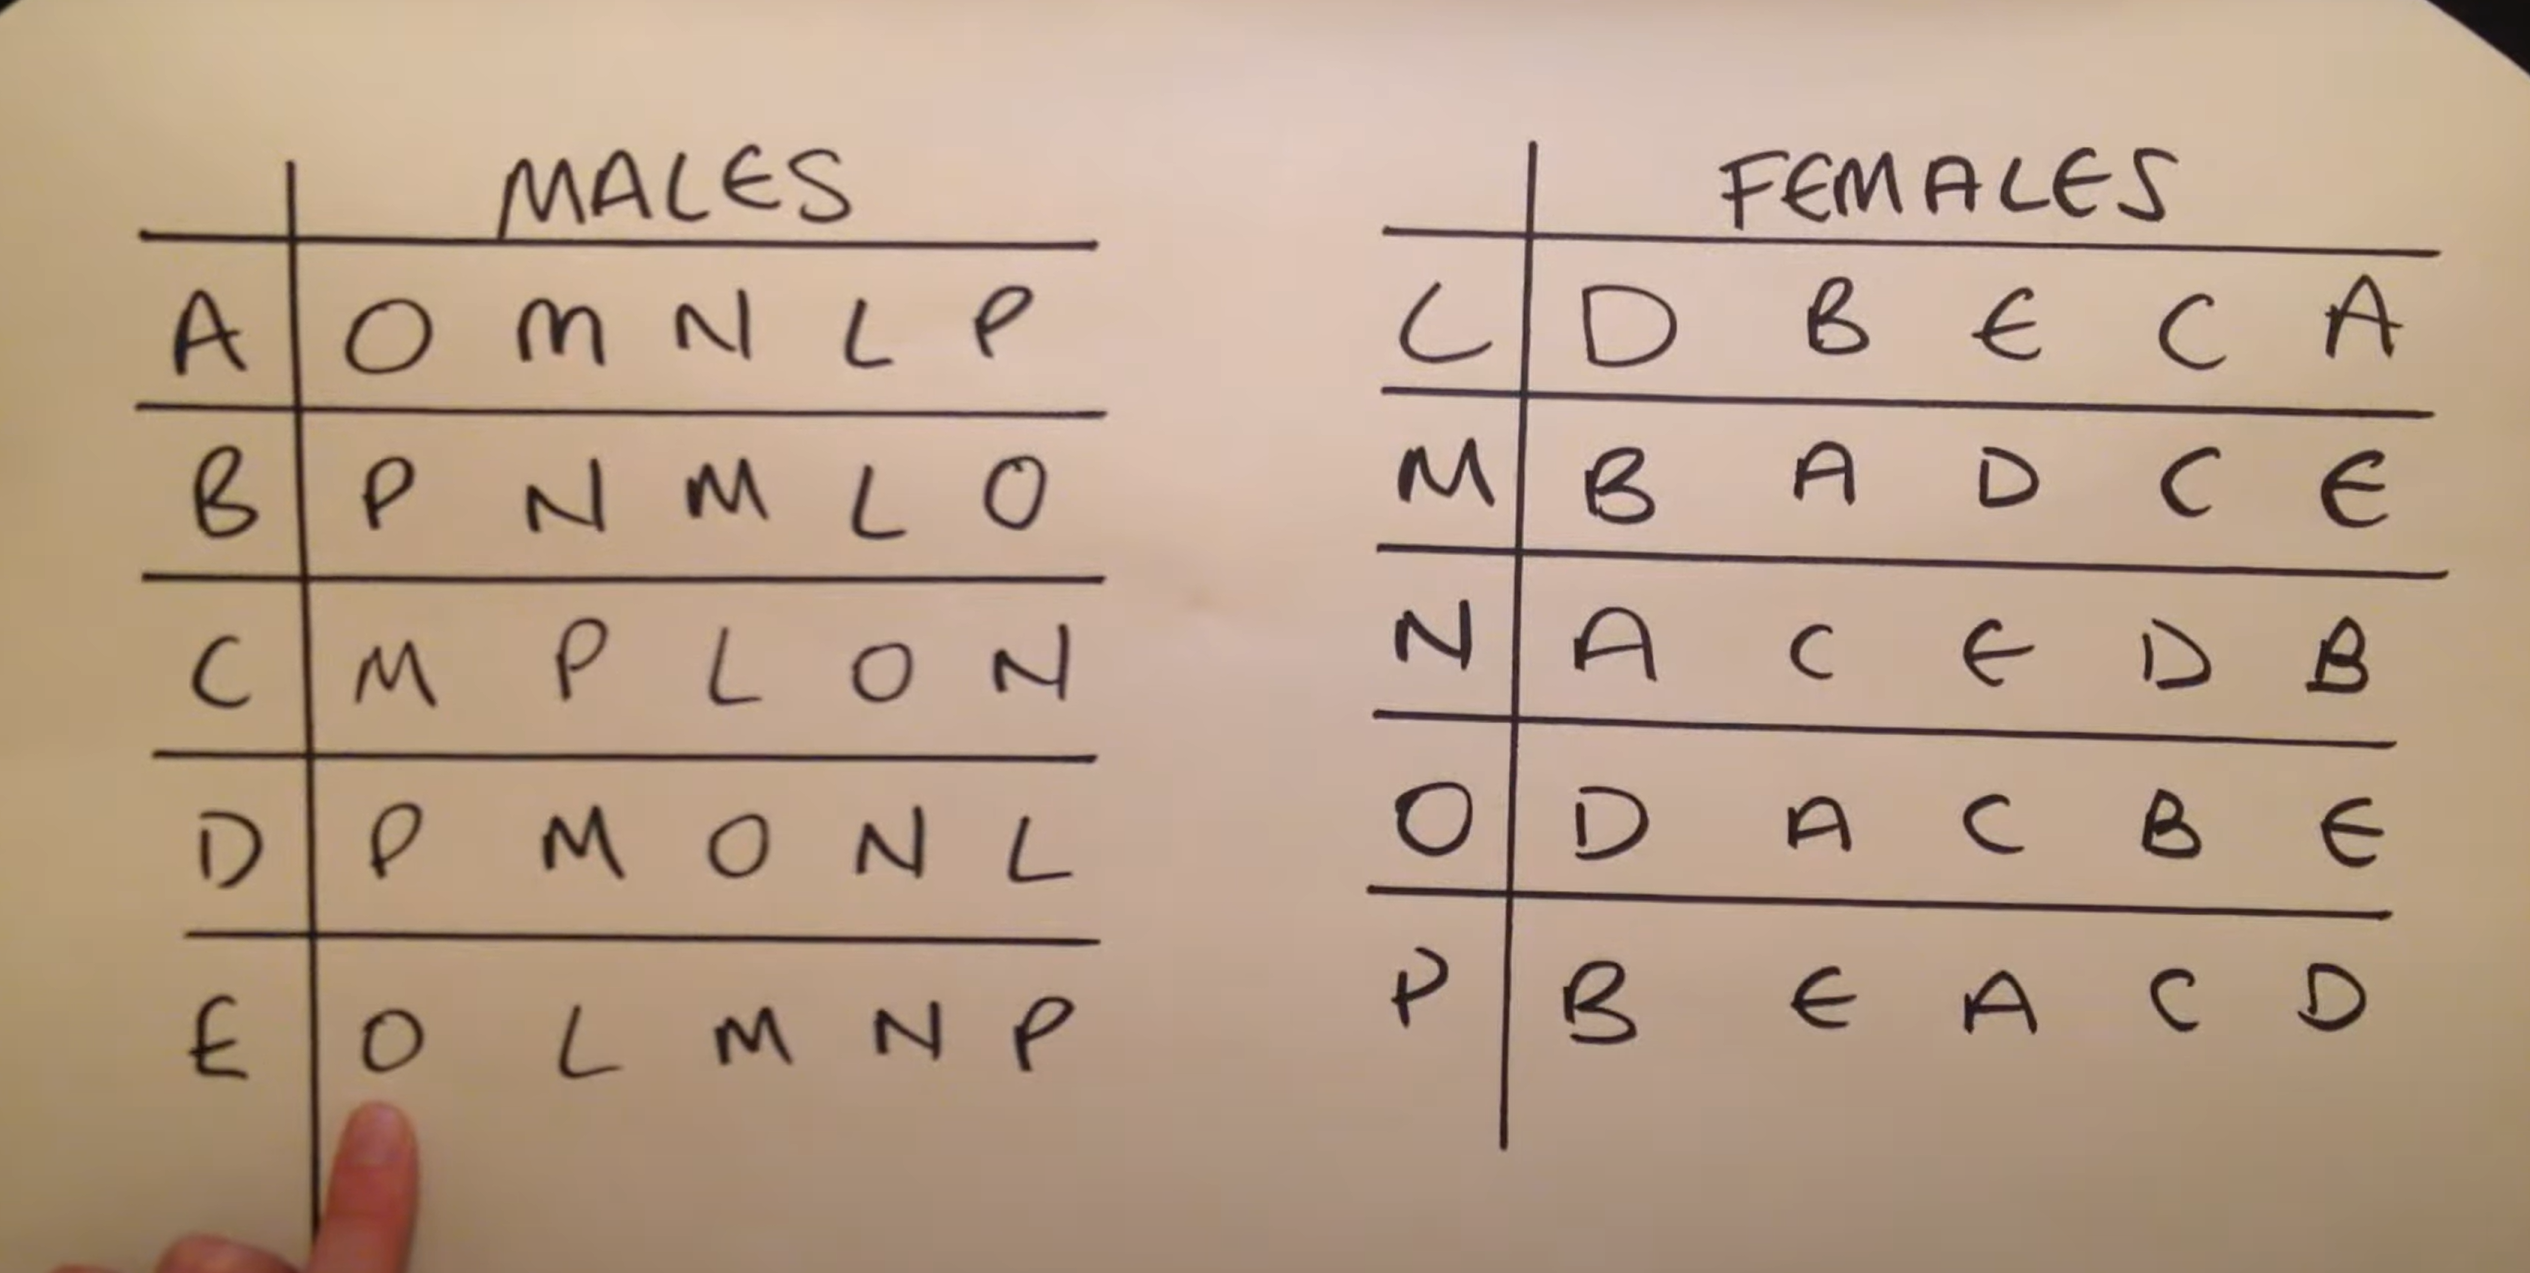 MALES
A O M N L P
B P N M L O
C M P L O N
D P M O N L
E O L M N P
FEMALES
L D B E C A
M B A D C E
N A C E D B
O D A C B E
P B E A C D